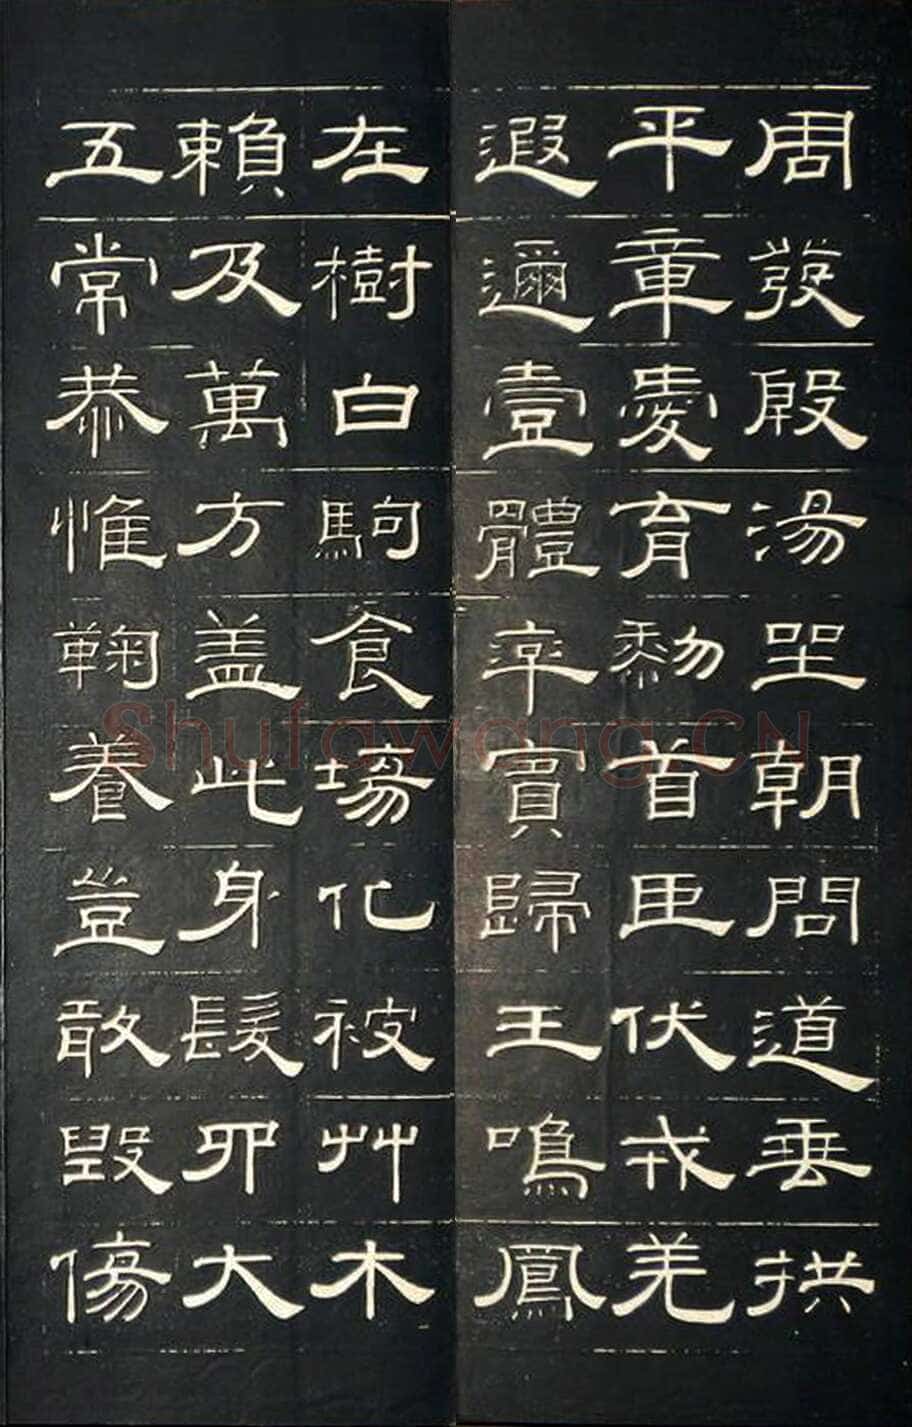 周發殷湯坐朝問道垂拱
平章愛育黎首臣伏戎羌
遐邇壹體率賓歸王鳴鳳
在樹白駒食場化被艸木
賴及萬方盖此身髮四大
五常恭惟鞠養豈敢毀傷
Shufawang.CN